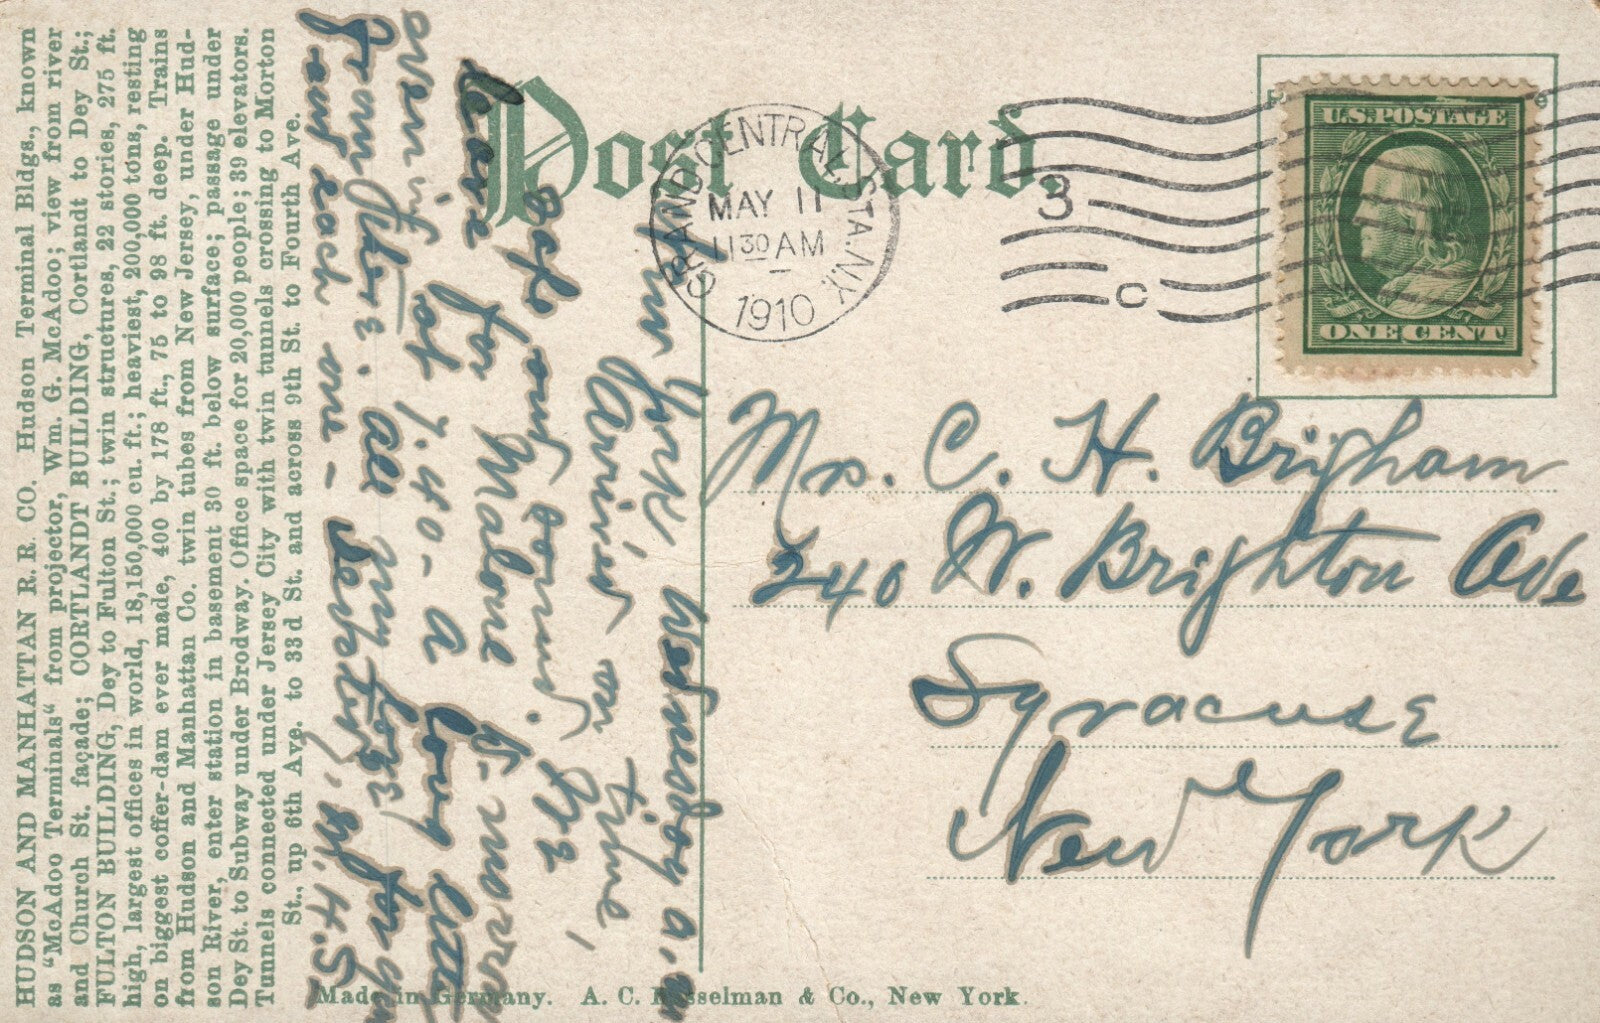 HUDSON AND MANHATTAN R. R. CO. Hudson Terminal Bldgs., known
as "McAdoo Terminals“ from projector, Wm. G. McAdoo; view from river
and Church St. façade; CORTLANDT BUILDING, Cortlandt to Dey St.;
FULTON BUILDING, Dey to Fulton St.; twin structures, 22 stories, 275 ft.
high, largest offices in world, 18,150,000 cu. ft.; heaviest, 200,000 tons, resting
on biggest coffer-dam ever made, 400 by 178 ft., 75 to 98 ft. deep. Trains
from Hudson and Manhattan Co. twin tubes from New Jersey, under Hud-
son River, enter station in basement 30 ft. below surface; passage under
Dey St. to Subway under Brodway. Office space for 20,000 people; 39 elevators.
Tunnels connected under Jersey City with twin tunnels crossing to Morton
St., up 6th Ave. to 33d St. and across 9th St. to Fourth Ave.
Post Card.
New York, Wednesday a.m
Arrived on time,
safe and sound. We
leave for Malone
at 7.40 - a long letter
from . all my love for you
and each one - Devotedly, M.H.S.
GRAND CENTRAL STA. N.Y.
MAY 11
11 30 AM
1910
3
C
U.S. POSTAGE
ONE CENT
Mr. C. H. Brigham
240 W. Brighton Ave
Syracuse
New York
Made in Germany. A. C. Bosselman & Co., New York.